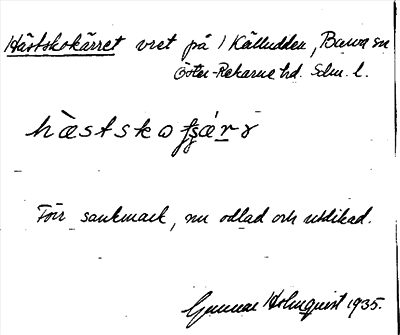 Hästskokärret vret på 1 Källudden, Barva sn
Öster-Rekarne hd. Sdm. l.
Förr sankmark, nu odlad och utdikad.
Gunnar Holmquist 1935.